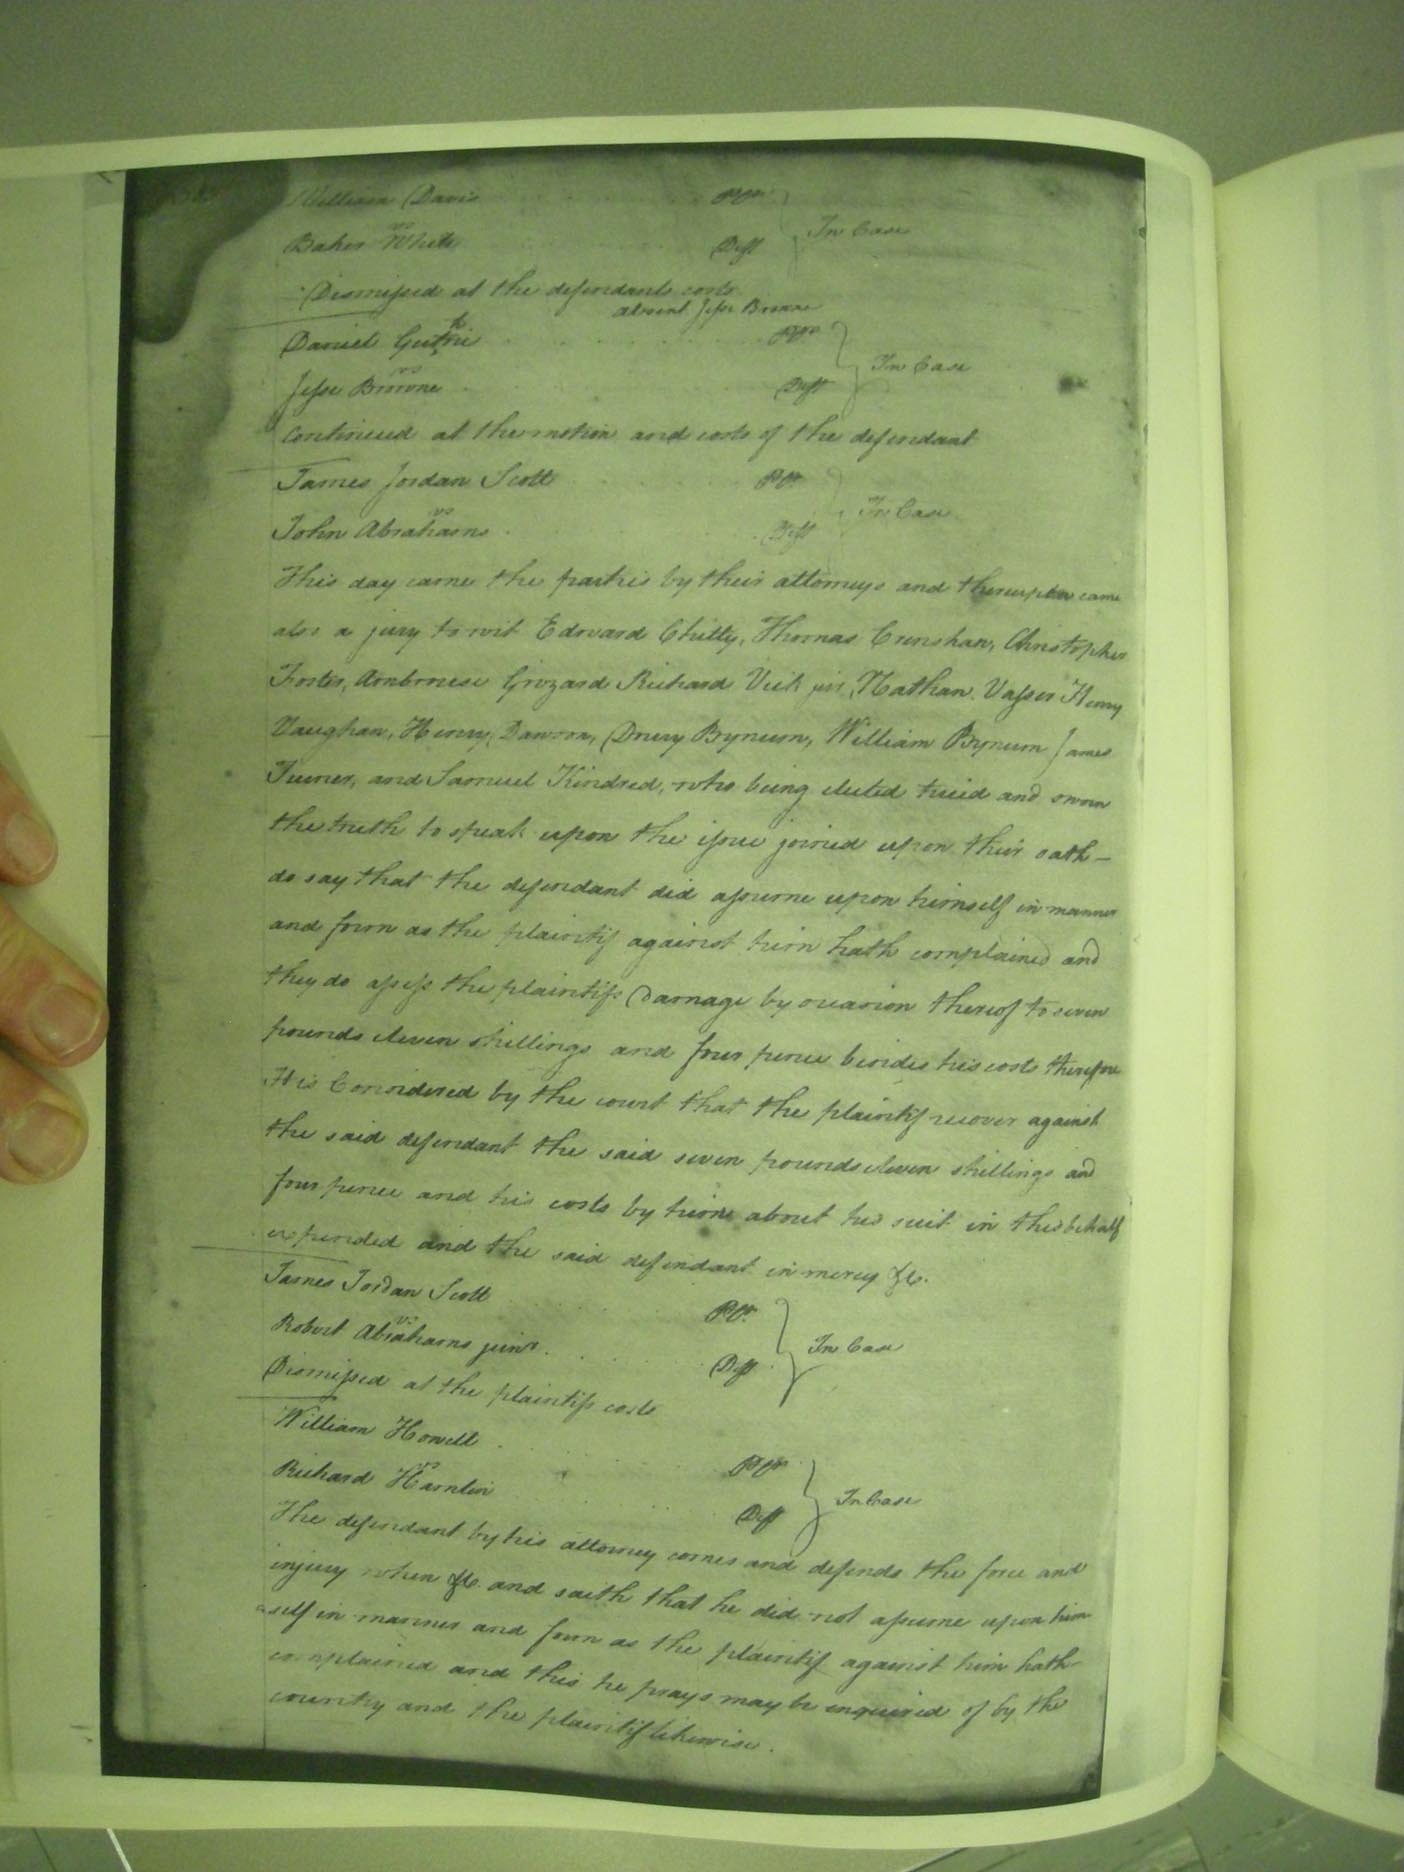 William Davis Plt.
vs In Case
Baker White Deft
Dismissed at the defendants costs
absent Jesse Browne
Daniel Guthrie Plt.
vs In Case
Jesse Browne Deft
continued at the motion and costs of the defendant
James Jordan Scott Plt.
vs In Case
John Abrahams Deft
This day came the parties by their attorneys and thereupon came
also a jury to wit Edward Chitty, Thomas Crenshaw, Christopher
Foster, Ambrouse Grizard Richard Vick jur, Nathan Vasser Henry
Vaughan, Henry Dawson, Drury Bynum, William Bynum James
Turner, and Samuel Kindred, who being elected tried and sworn
the truth to speak upon the issue joined upon their oath
do say that the defendant did assume upon himself in manner
and form as the plaintif against him hath complained and
they do assess the plaintifs Damage by occasion thereof to seven
pounds eleven shillings and four pence besides his costs therefore
It is Considered by the court that the plaintif recover against
the said defendant the said seven pounds eleven shillings and
four pence and his costs by him about his suit in this behalf
expended and the said defendant in mercy &c.
James Jordan Scott Plt.
vs In Case
Robert Abrahams junr. Deft
Dismissed at the plaintifs costs
William Howell Plt.
vs In Case
Richard Hamlin Deft
The defendant by his attorney comes and defends the force and
injury when &c. and saith that he did not assume upon him
self in manner and form as the plaintif against him hath
complained and this he prays may be enquired of by the
country and the plaintif likewise.